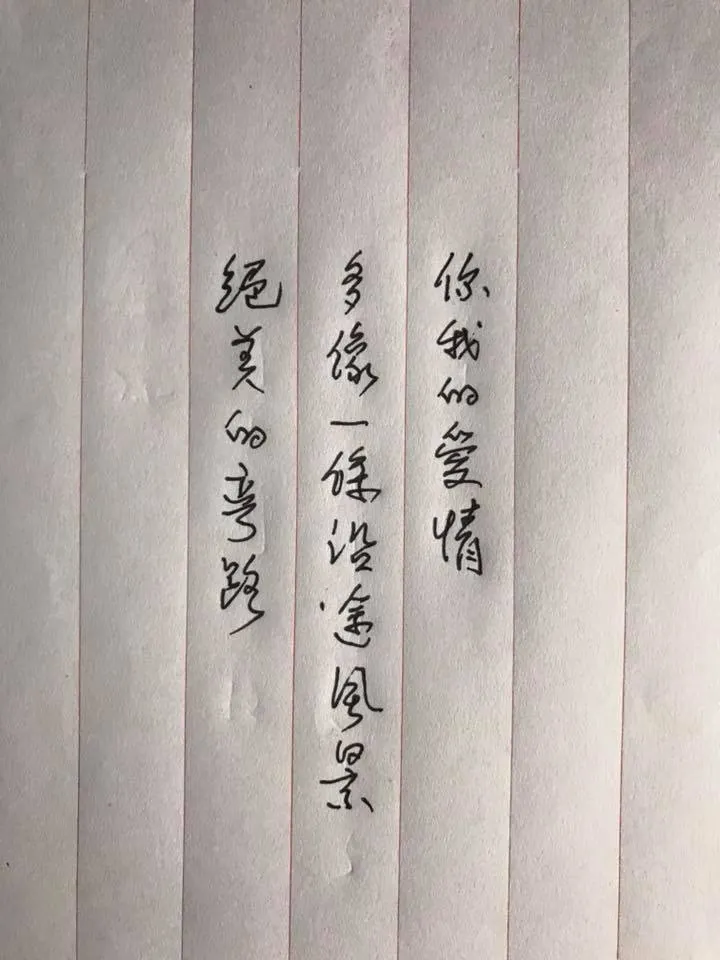 你我的愛情
多像一條沿途風景
絕美的彎路